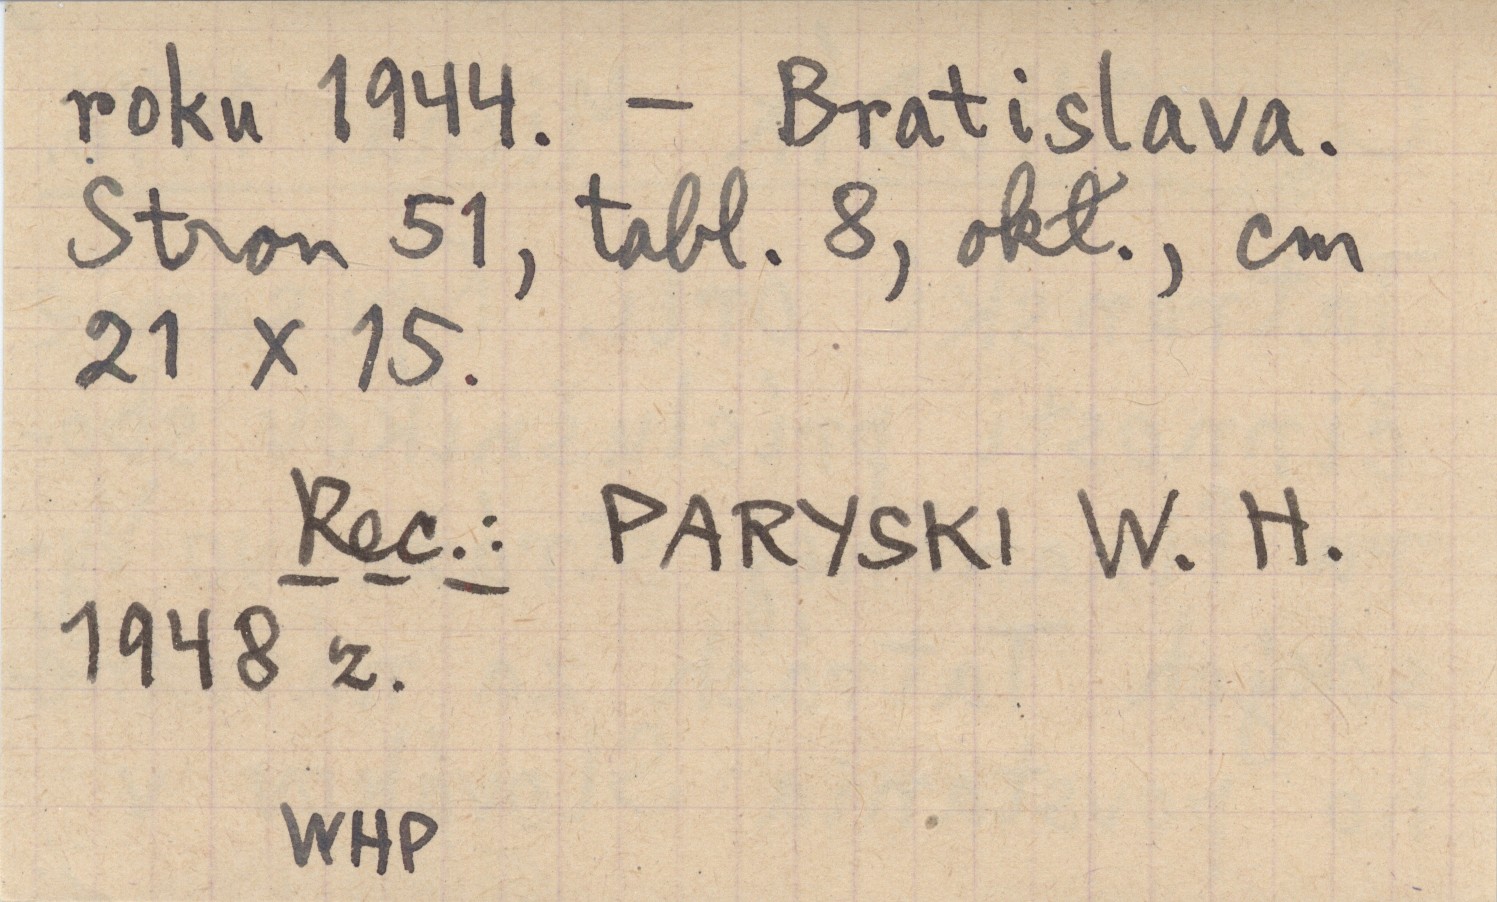 roku 1944. — Bratislava.
Stron 51, tabl. 8, okł., cm
21 x 15.
Rec.: PARYSKI W. H.
1948 z.
WHP